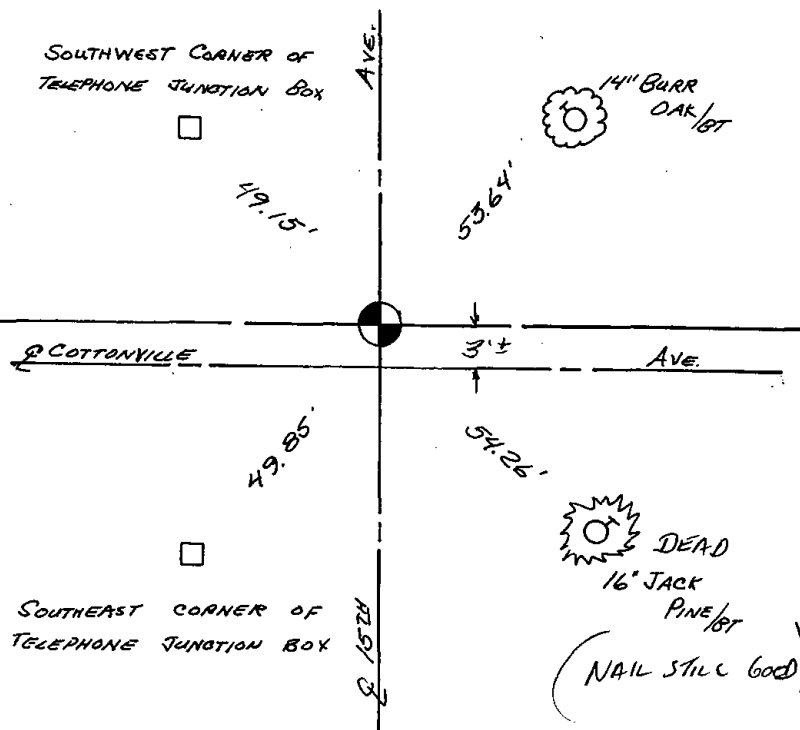 SOUTHWEST CORNER OF
TELEPHONE JUNCTION BOX
AVE.
14" BURR
OAK/BT
49.15'
53.64'
℄ COTTONVILLE
3'±
AVE.
49.85'
54.26'
DEAD
16" JACK
PINE/BT
SOUTHEAST CORNER OF
TELEPHONE JUNCTION BOX
℄ 15TH
(NAIL STILL GOOD)